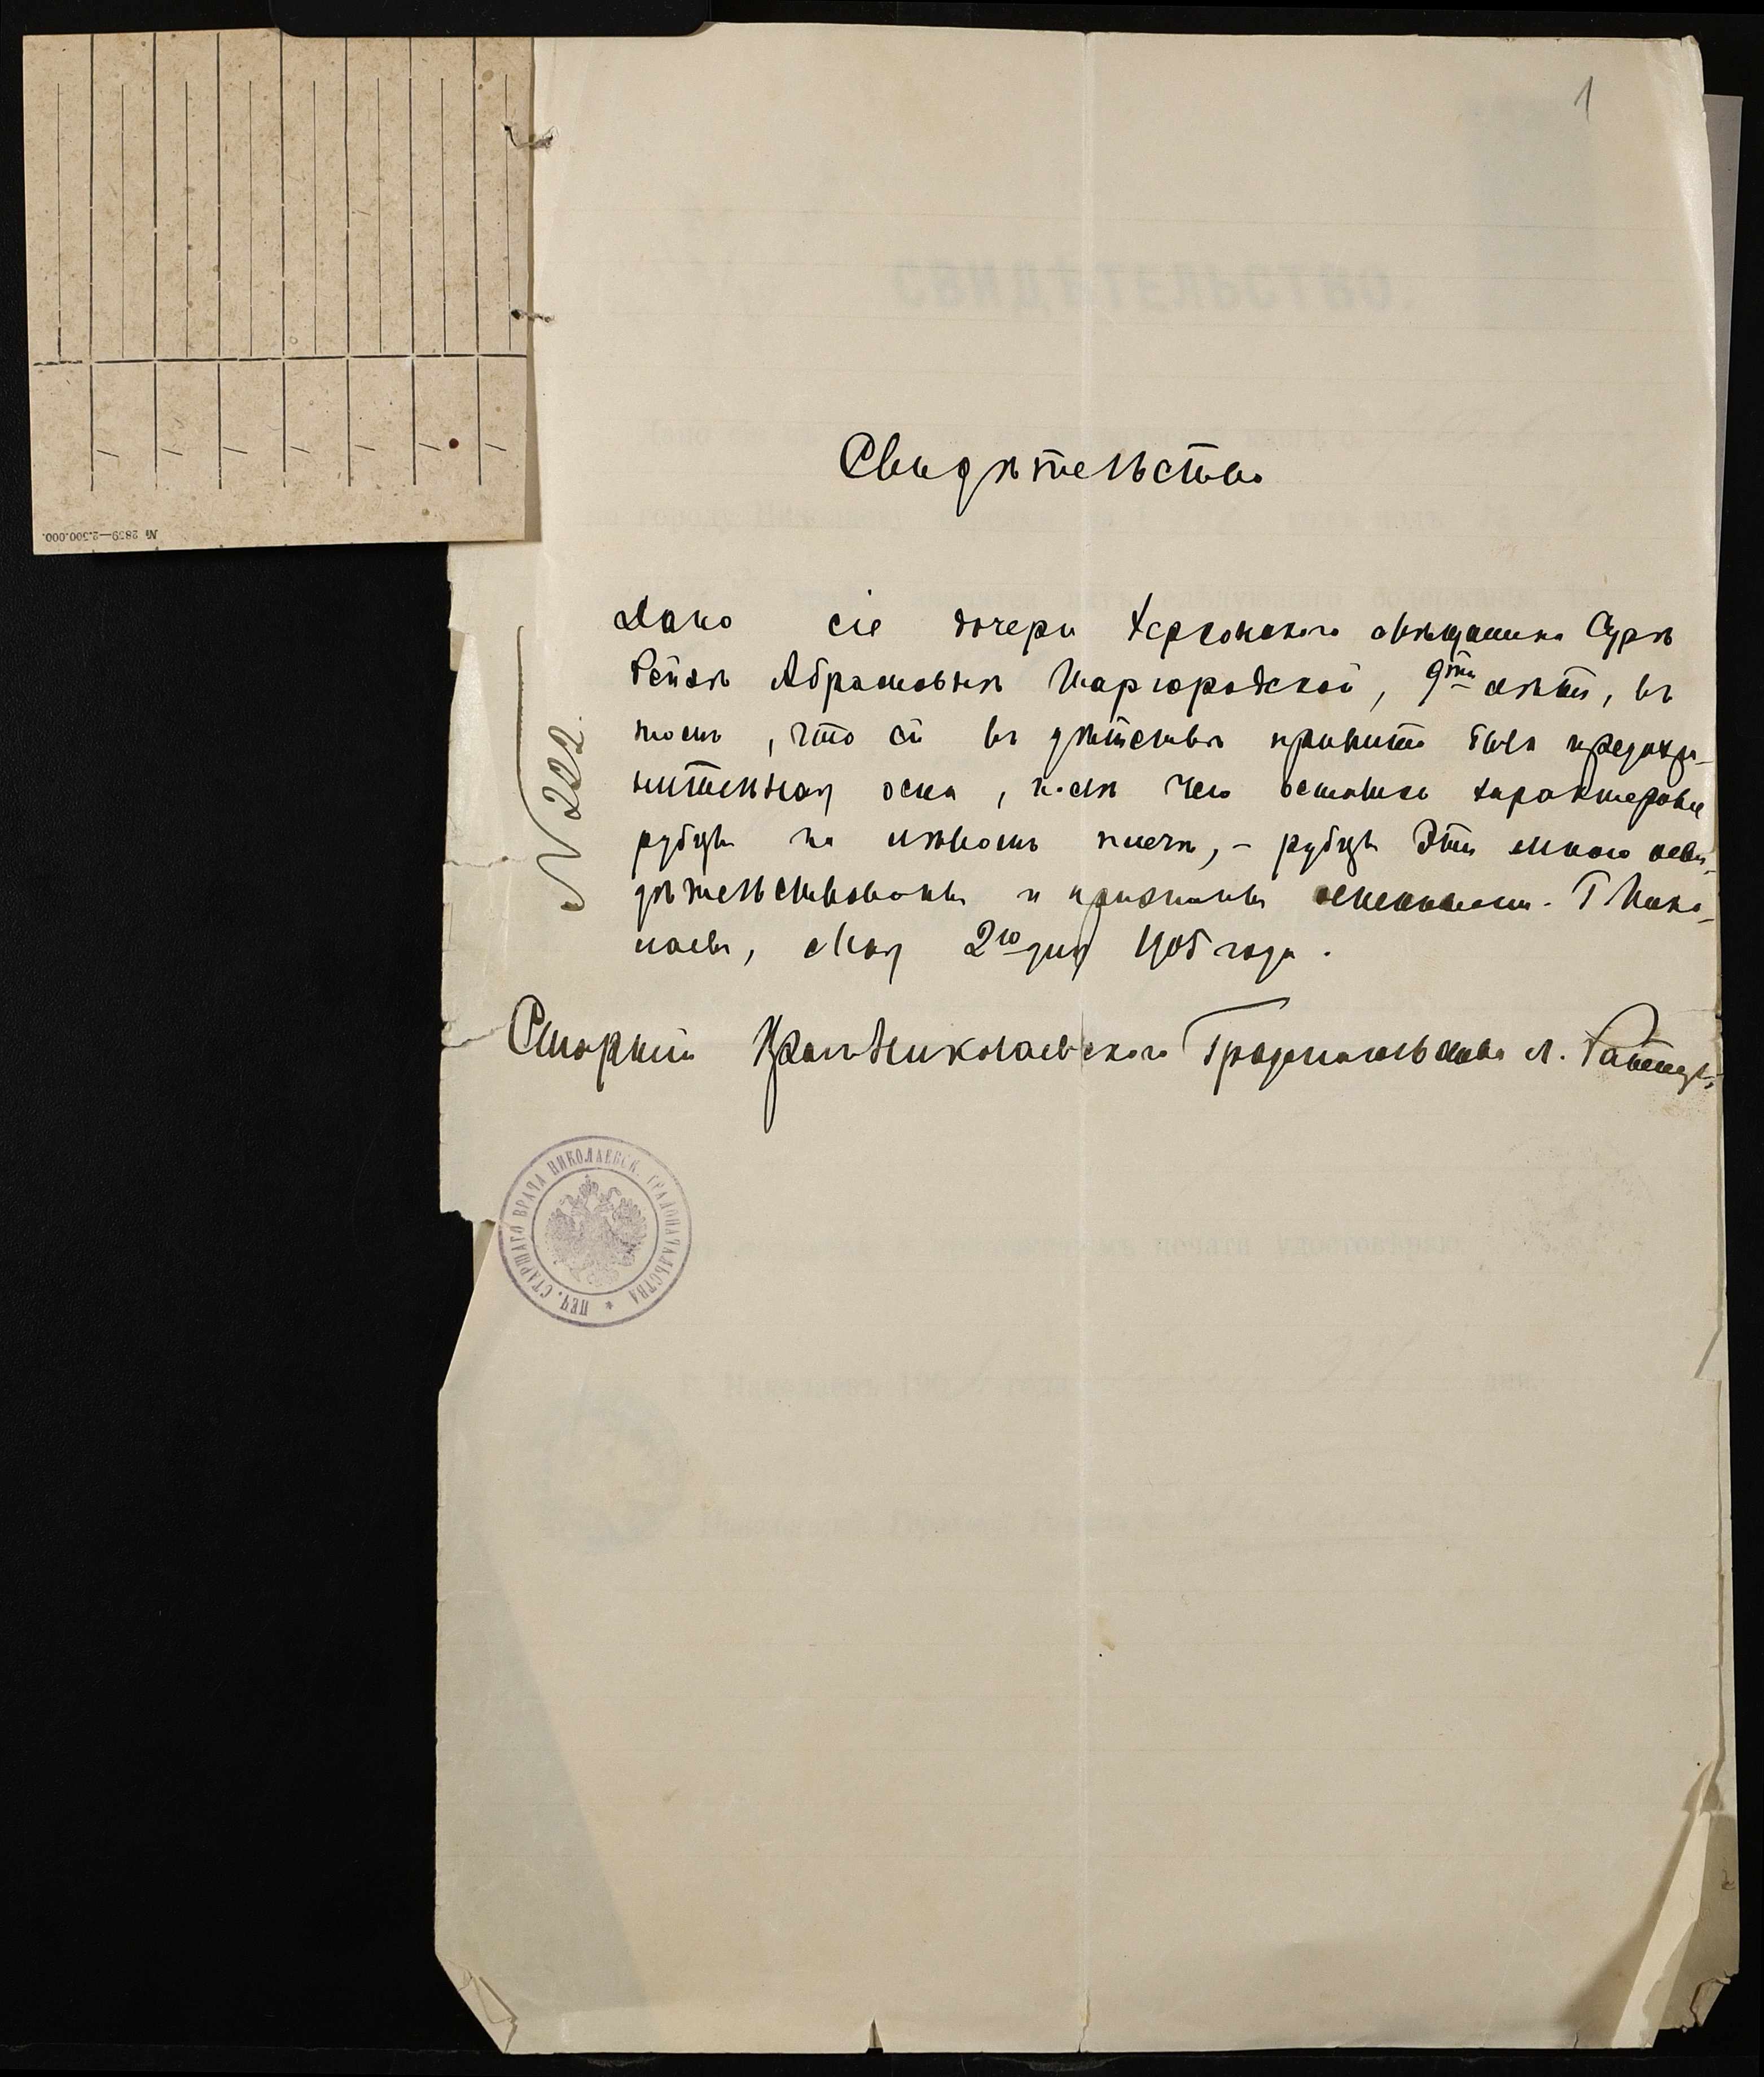 1
СВИДѢТЕЛЬСТВО.
Свидѣтельство
Дано сіе дочери Херсонскаго мѣщанина Сурѣ
Рейзѣ Абрамовнѣ Шаргородской, 9ти лѣтъ, въ
томъ, что ей въ дѣтствѣ привита была предохра-
нительная оспа, послѣ чего остались характерные
рубцы на лѣвомъ плечѣ, – рубцы эти мною осви-
дѣтельствованы и признаны оспенными. Г. Нико-
лаевъ, Мая 2го дня 1905 года.
Старшій Врачъ Николаевскаго Градоначальства Л.
N 222.
ПЕЧ. СТАРШАГО ВРАЧА НИКОЛАЕВСК. ГРАДОНАЧАЛЬСТВА *
№ 2859—2.500.000.